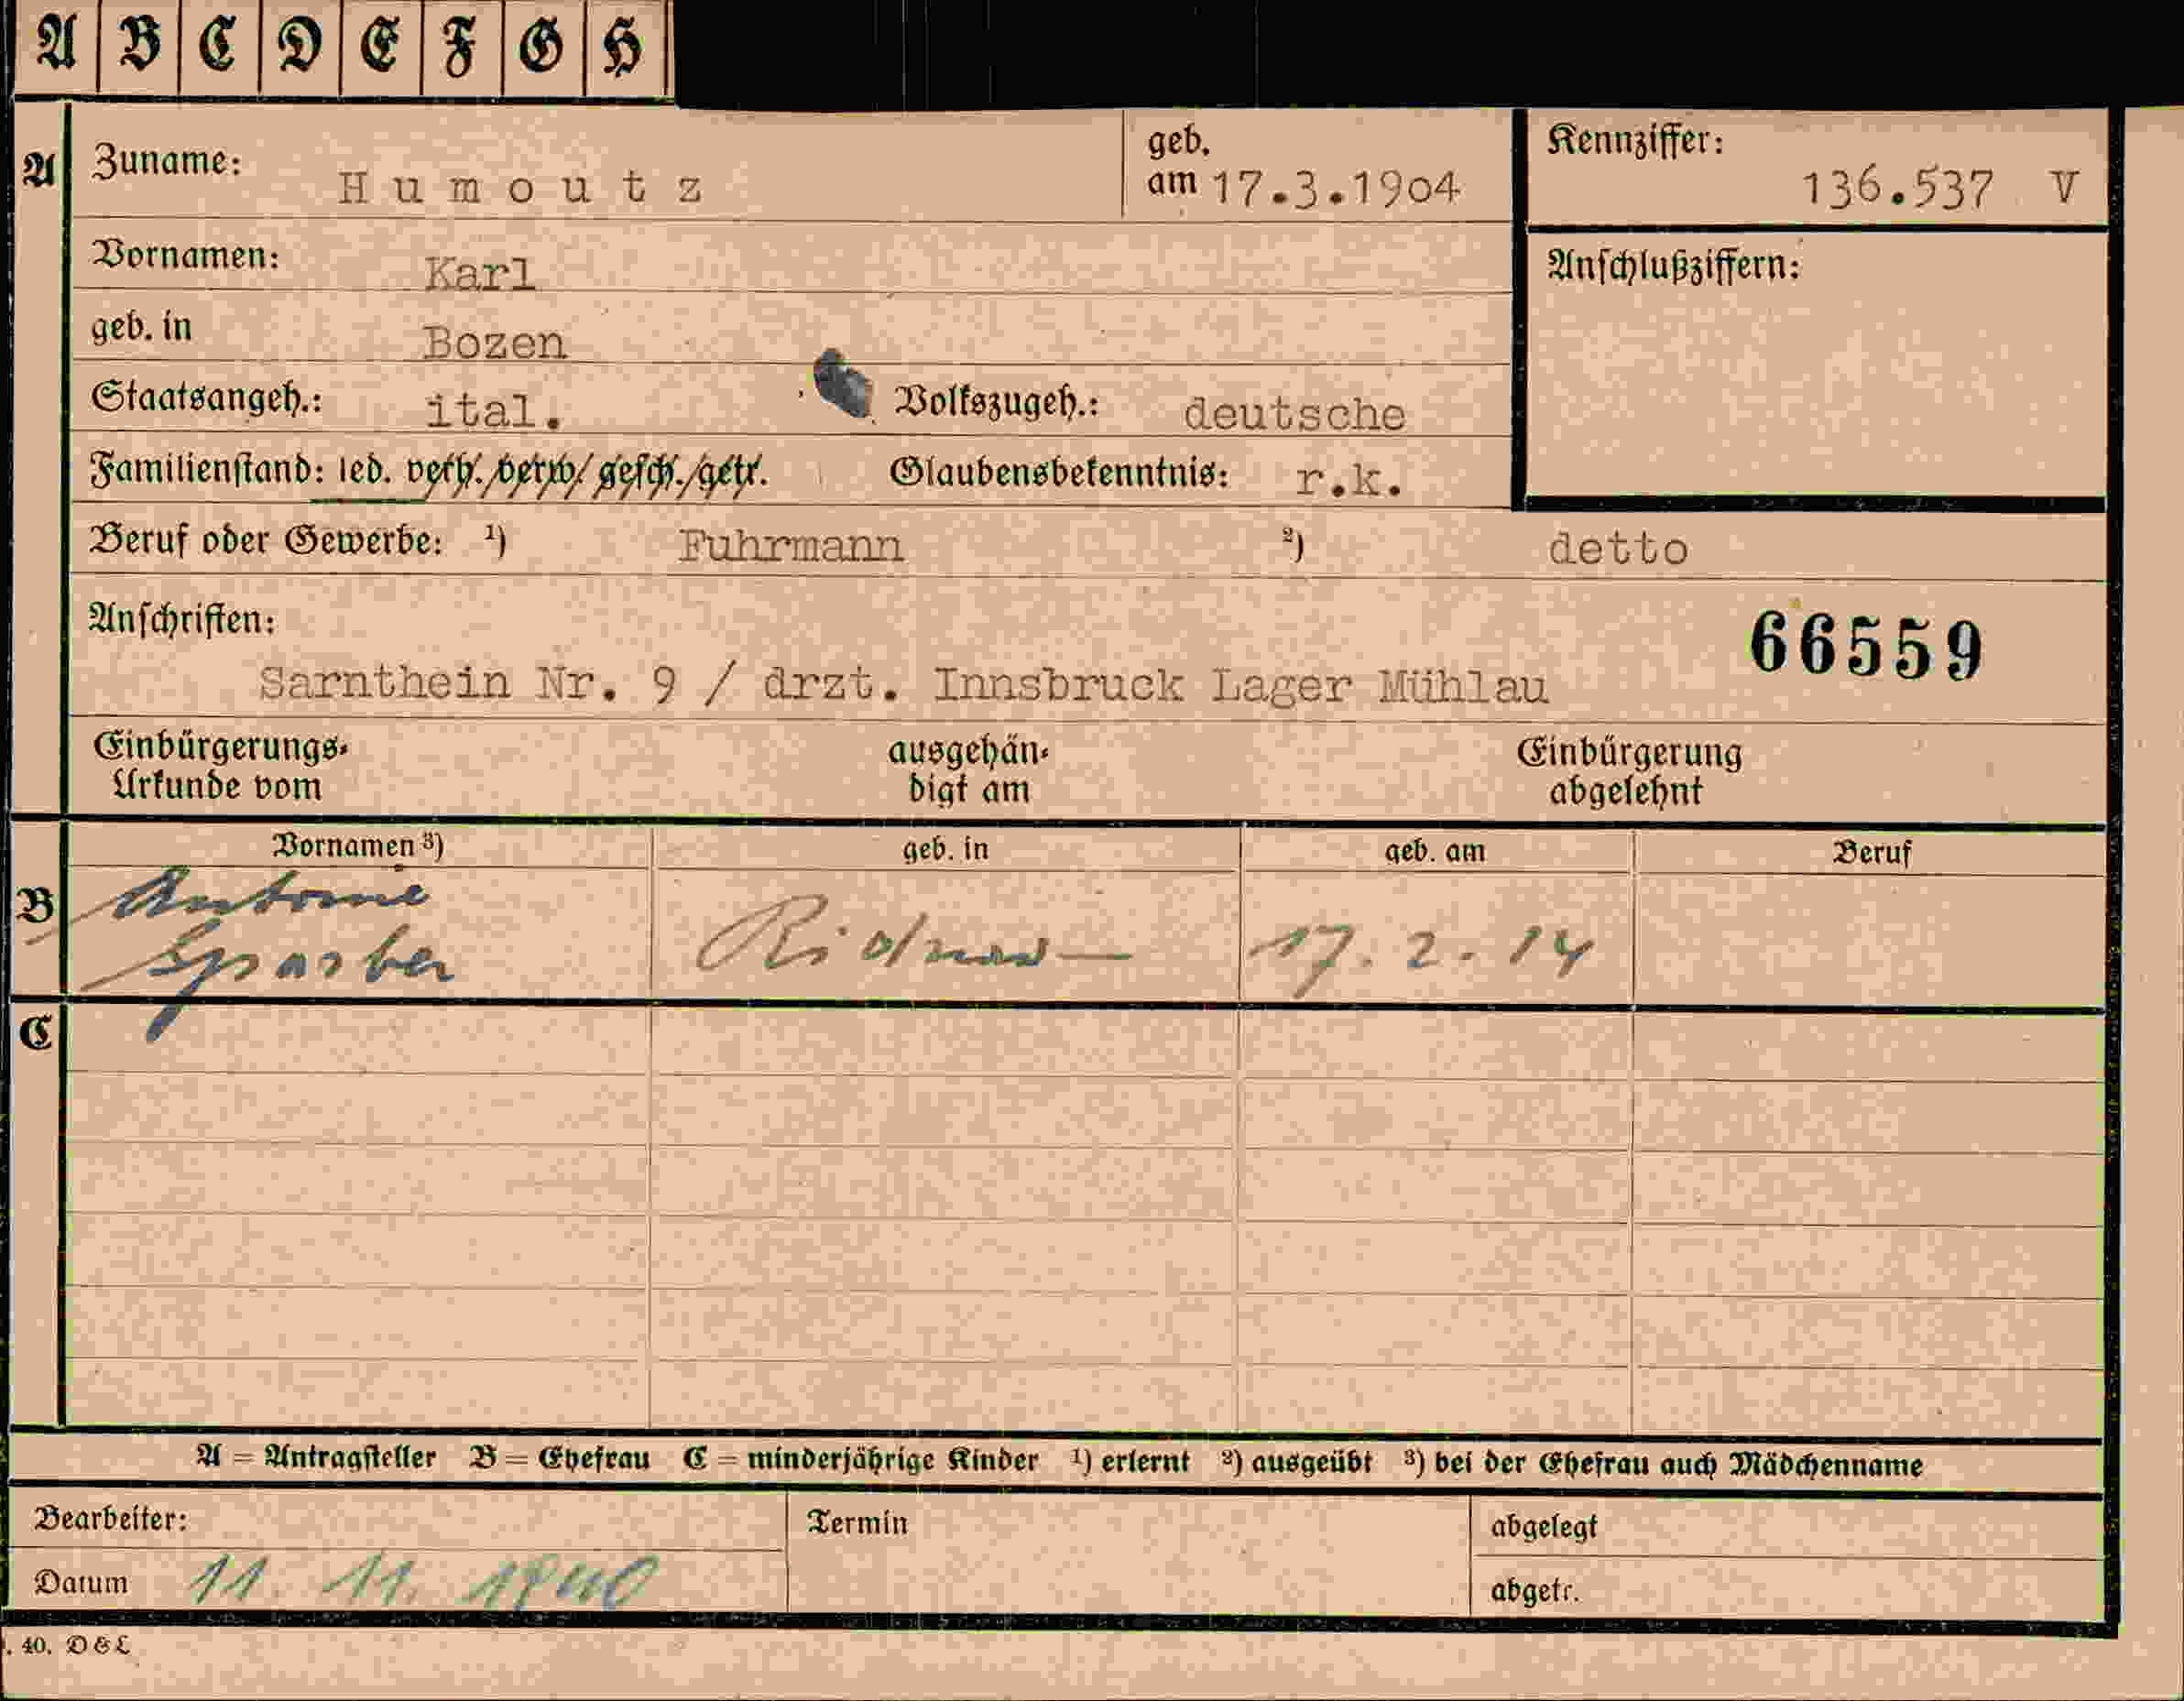 A B C D E F G H
A Zuname: Humoutz geb. am 17.3.1904 Kennziffer: 136.537 V
Vornamen: Karl Anschlußziffern:
geb. in Bozen
Staatsangeh.: ital. Volkszugeh.: deutsche
Familienstand: led. verh./verw/gesch./getr. Glaubensbekenntnis: r.k.
Beruf oder Gewerbe: ¹) Fuhrmann ²) detto
Anschriften: 66559
Sarnthein Nr. 9 / drzt. Innsbruck Lager Mühlau
Einbürgerungs- ausgehän- Einbürgerung
Urkunde vom digt am abgelehnt
Vornamen ³) geb. in geb. am Beruf
B Antonie
Sparber 17. 2. 14
C
A = Antragsteller B = Ehefrau C = minderjährige Kinder ¹) erlernt ²) ausgeübt ³) bei der Ehefrau auch Mädchenname
Bearbeiter: Termin abgelegt
Datum 11. 11. 1940 abgetr.
. 40. D & L